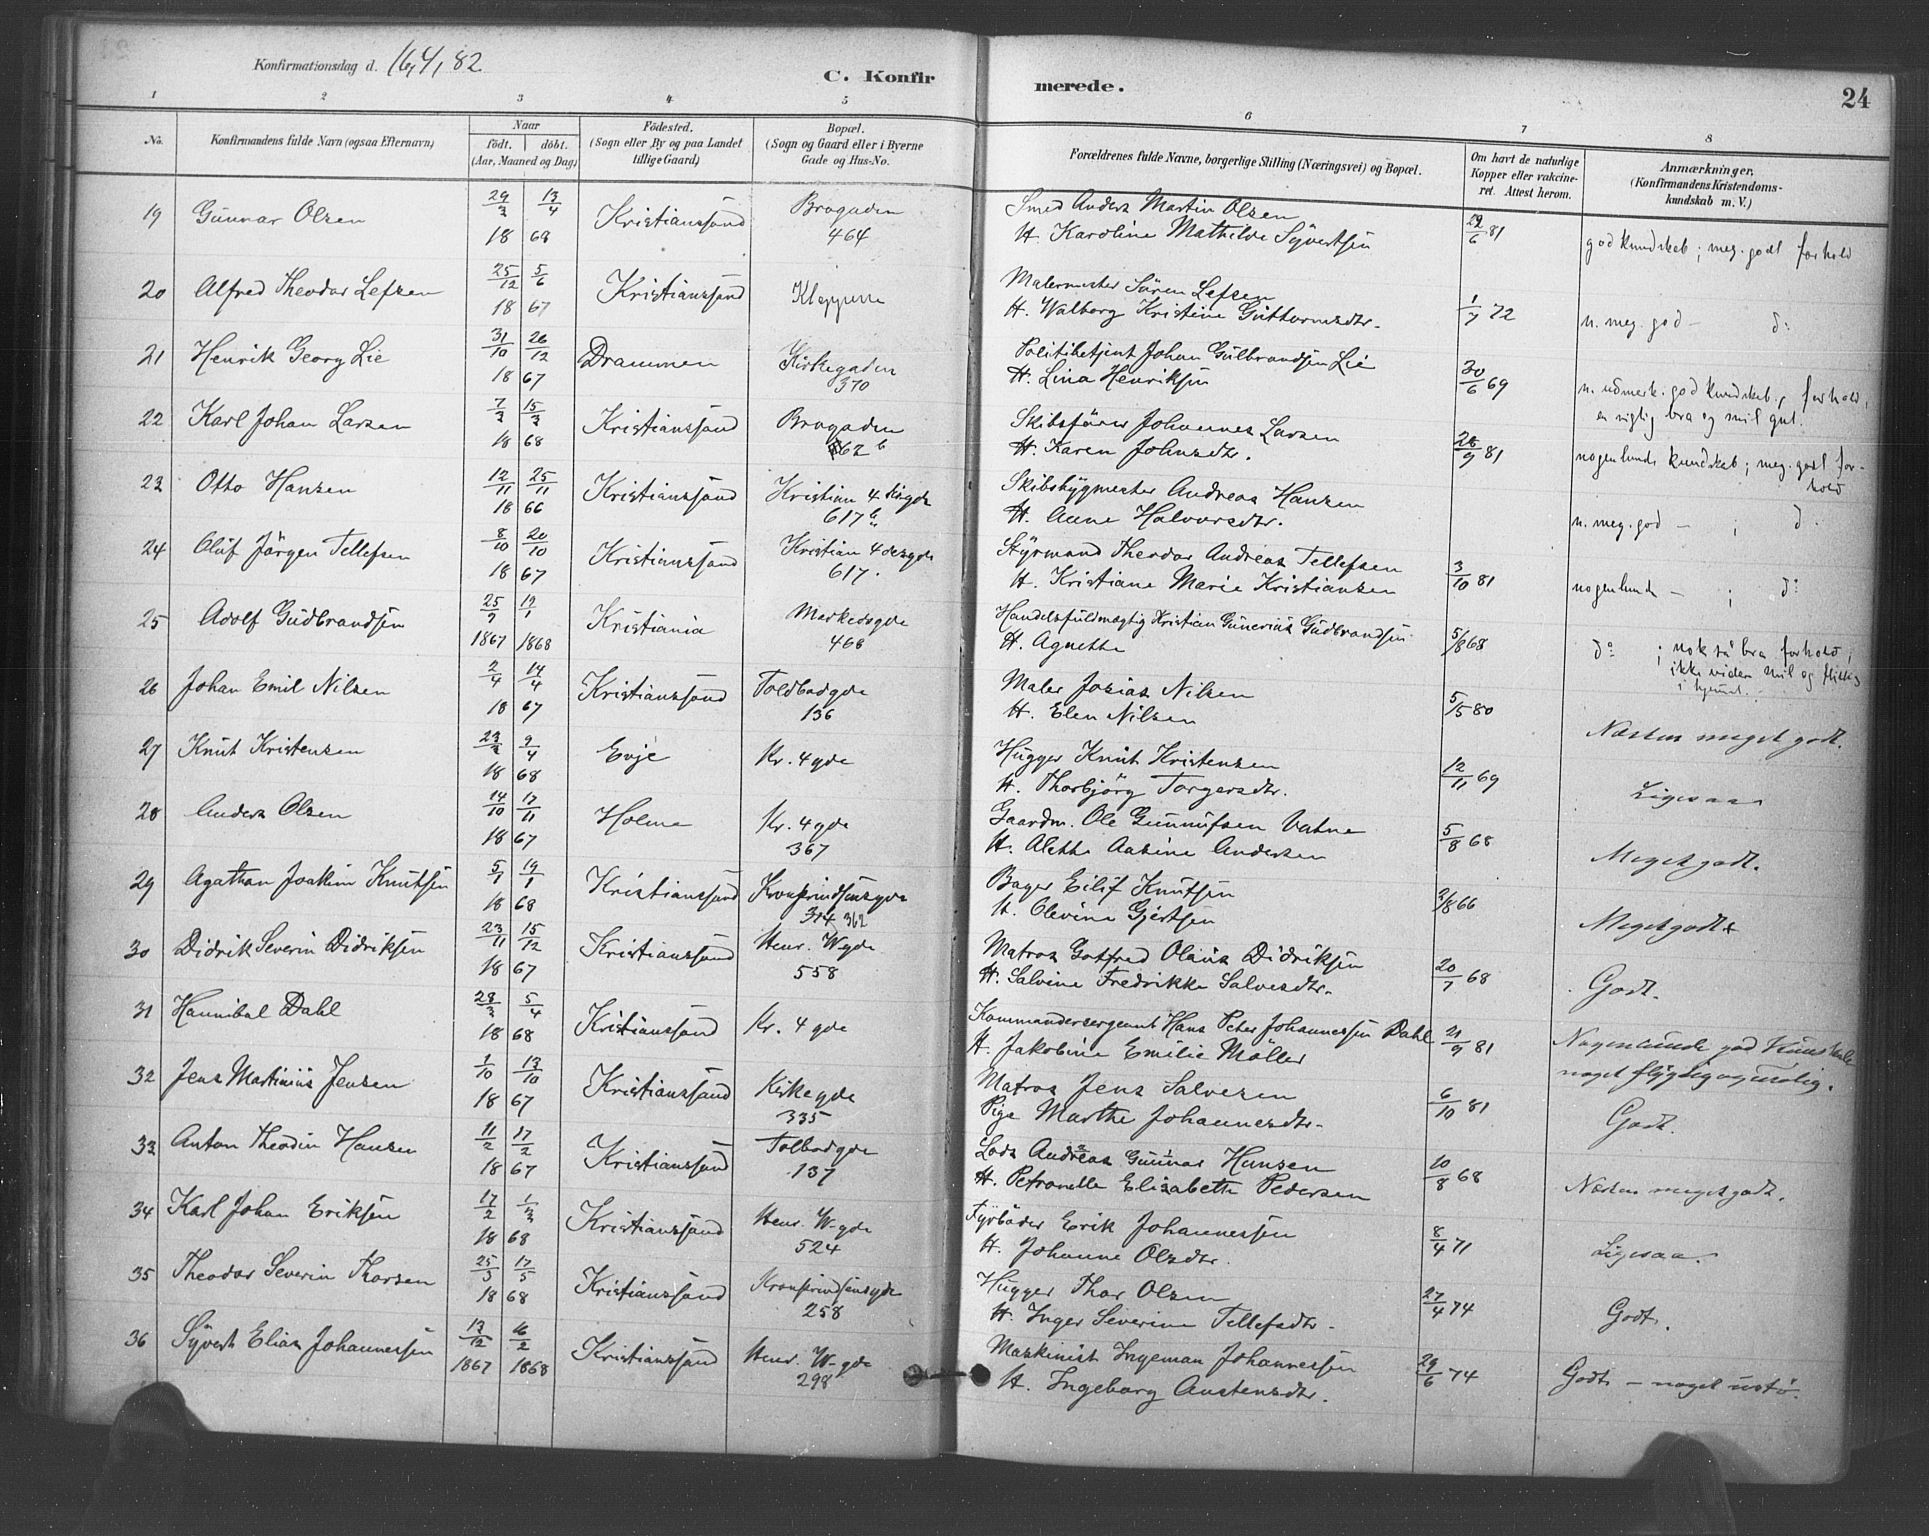 Konfirmationsdag d. 16/4, 82
C. Konfirmerede.
24
1 2 3 4 5 6 7 8
No. Konfirmandens fulde Navn (ogsaa Efternavn) Naar født. døbt. (Aar, Maaned og Dag) Fødested. (Sogn eller By og paa Landet tillige Gaard) Bopæl. (Sogn og Gaard eller i Byerne Gade og Hus-No. Forældrenes fulde Navne, borgerlige Stilling (Næringsvei) og Bopæl. Om havt de naturlige Kopper eller vakcineret. Attest herom. Anmærkninger. (Konfirmandens Kristendomskundskab m. V.)
19 Gunnar Olsen 29/3 13/4 18 68 Kristianssand Brogaden 464 Smed Anders Martin Olsen H. Karoline Mathilde Syvertsen 29/6 81 god kundskab; meg. godt forhold
20 Alfred Theodor Lefsen 25/12 5/6 18 67 Kristianssand Klappene Malermester Sören Lefsen H. Walborg Kristine Guttormsdtr. 1/7 72 n. meg. god – do
21 Henrik Georg Lie 31/10 26/12 18 67 Drammen Kirkegaden 370 Politibetjent Johan Gulbrandsen Lie H. Lina Henriksen 30/6 69 n. udmerk. god kundskab, forhold, er rigtig bra og
22 Karl Johan Larsen 7/3 15/3 18 68 Kristianssand Brogaden 62 b Skibsfører Johannes Larsen H. Karen Johnsdtr. 28/9 81 nogenlunde kundskab; meg. godt forhold
23 Otto Hansen 12/11 25/11 18 66 Kristianssand Kristian 4 desgde 617 b Skibsbygmester Andreas Hansen H. Anne Halvorsdtr. n. meg. god – ; do
24 Oluf Jörgen Tellefsen 8/10 20/10 18 67 Kristianssand Kristian 4 desgde 617. Styrmand Theodor Andreas Tellefsen H. Kristiane Marie Kristiansen 3/10 81 nogenlunde – ; do
25 Adolf Gudbrandsen 25/9 19/1 1867 1868 Kristiania Markedsgde 468 Handelsfuldmægtig Kristian Gunerius Gudbrandsen H. Agnette 5/8 68 do ; nok så bra forhold; ikke videre snil og flittig i hjemmet.
26 Johan Emil Nilsen 2/4 14/4 18 67 Kristianssand Toldbodgde 136 Maler Josias Nilsen H. Elen Nilsen 5/5 80 Næsten meget godt.
27 Knut Kristensen 23/3 9/4 18 68 Evje Kr. 4 gde Hugger Knut Kristensen H. Thorbjörg Torgersdtr. 12/11 69 Ligesaa
28 Anders Olsen 14/10 17/11 18 67 Holme Kr. 4 gde 367 Gaardm. Ole Gunnufsen Vatne H. Alette Aasine Andersen 5/8 68 Meget godt.
29 Agathon Joakim Knutsen 5/1 19/1 18 68 Kristianssand Kronprindsensgde 314 362 Bager Eilif Knutsen H. Olevine Gjertsen 2/8 66 Meget godt
30 Didrik Severin Didriksen 23/11 15/12 18 67 Kristianssand Henr. W.gde 558 Matros Gotfred Olaus Didriksen H. Salvine Fredrikke Salvesdtr. 20/7 68 Godt.
31 Hannibal Dahl 28/3 5/4 18 68 Kristianssand Kr. 4 gde Kommandersergeant Hans Peter Johannessen Dahl H. Jakobine Emilie Möller 21/9 81 Nogenlunde god Kundskab noget
32 Jens Martinius Jensen 1/10 13/10 18 67 Kristianssand Kirkegde 335 Matros Jens Salvesen Pige Marthe Johannesdtr. 6/10 81 Godt.
33 Anton Theodin Hansen 11/2 17/2 18 67 Kristianssand Tolbodgde 137 Lods Andreas Gunnar Hansen H. Petronelle Elisabeth Pedersen 10/8 68 Næsten meget godt.
34 Karl Johan Eriksen 17/2 1/3 18 68 Kristianssand Henr. W-gde 524 Fyrböder Erik Johannessen H. Johanne Olsdtr. 8/4 71 Ligesaa.
35 Theodor Severin Thorsen 25/3 17/5 18 68 Kristianssand Kronprindsensgde 258 Hugger Thor Olsen H. Inger Severine Tellefsdtr. 27/4 74 Godt.
36 Syvert Elias Johannessen 13/12 16/2 1867 1868 Kristianssand Henr. W-gde 298 Maskinist Ingeman Johannessen H. Ingeborg Austensdtr. 29/6 74 Godt – noget ustø.